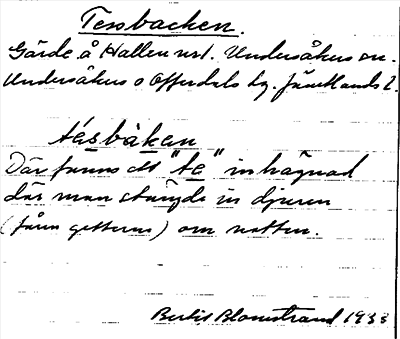 Tessbacken.
Gärde å Hallen nr 1. Undersåkers sn.
Undersåkers o Offerdals tg. Jämtlands l.
tésbàkan
Där fanns ett "te" inhägnad
där man stängde in djuren
(fåren getterna) om natten.
Bertil Blomstrand 1933